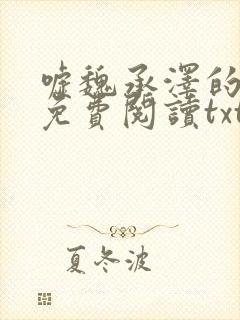 噓魏承澤的
免費閱讀txt
夏冬波